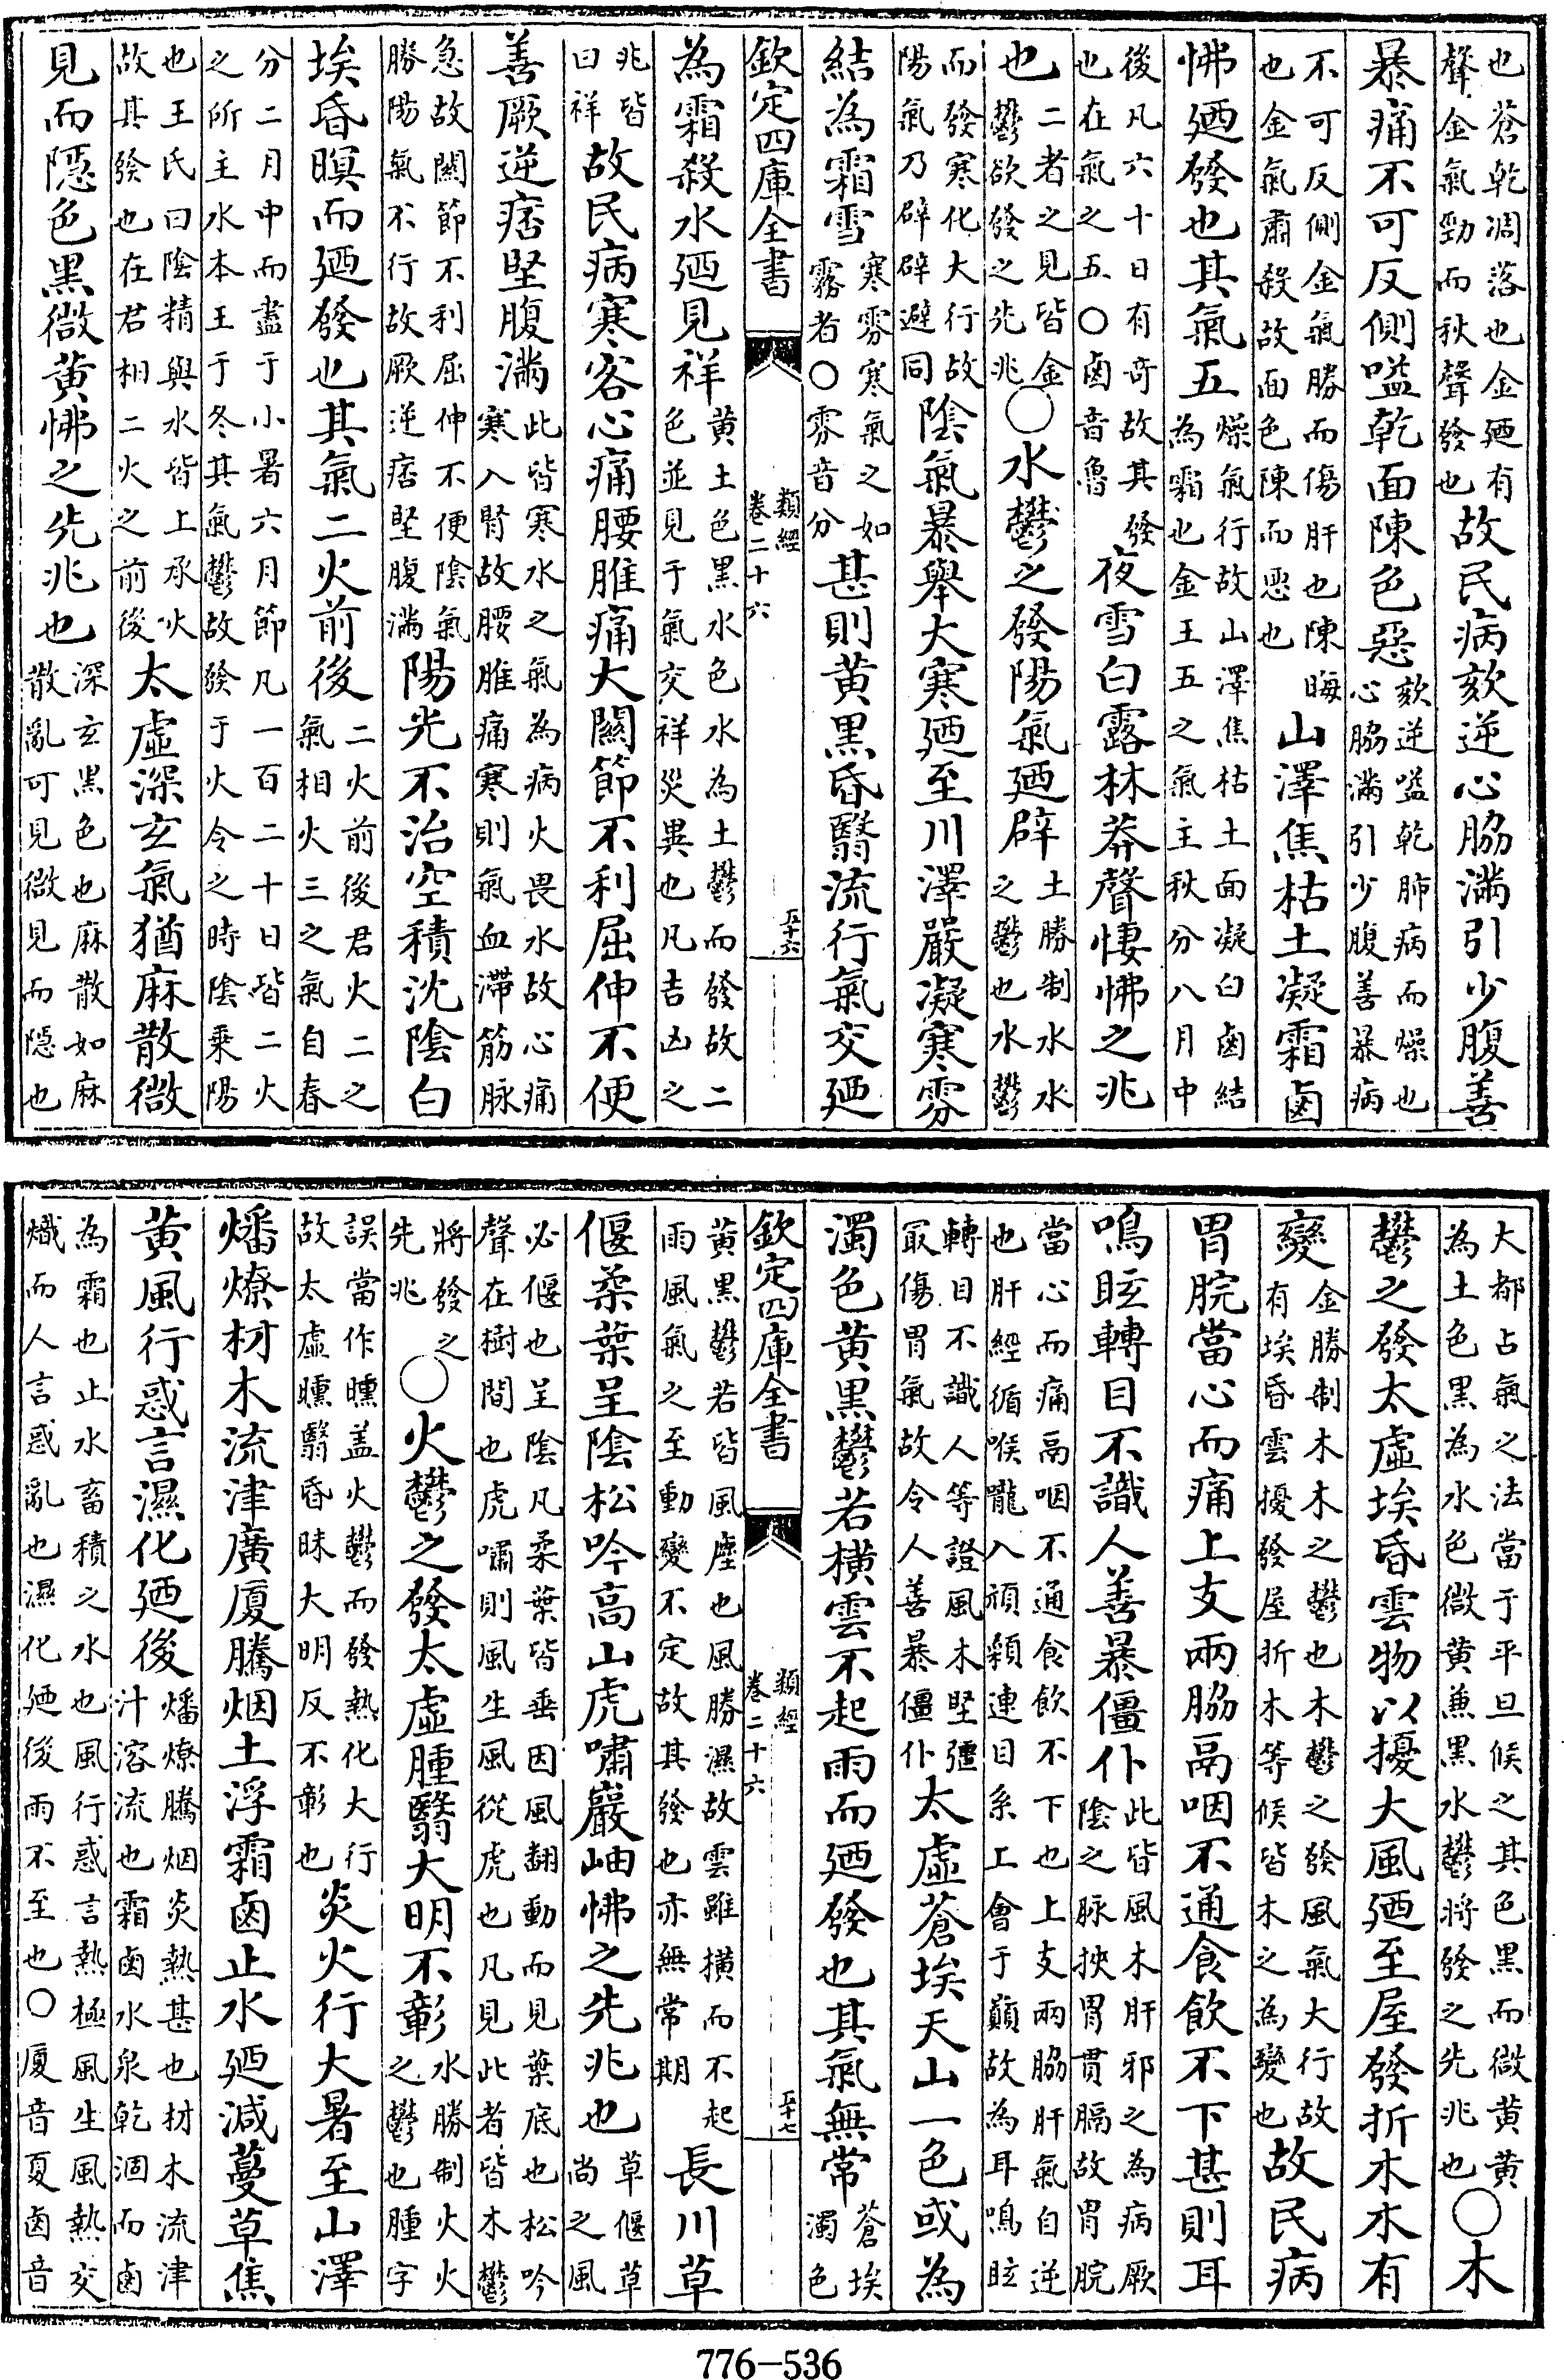 也蒼乾凋落也金廼有聲金氣勁而秋聲發也故民病欬逆心脇滿引少腹善
暴痛不可反側嗌乾面陳色惡欬逆嗌乾肺病而燥也心脇滿引少腹善暴病
不可反側金氣勝而傷肝也陳晦也金氣肅殺故面色陳而惡也山澤焦枯土凝霜鹵
怫廼發也其氣五燥氣行故山澤焦枯土面凝白鹵結為霜也金王五之氣主秋分八月中
後凡六十日有奇故其發也在氣之五○鹵音魯夜雪白露林莽聲悽怫之兆
也二者之見皆金鬱欲發之先兆○水鬱之發陽氣廼辟土勝制水水之鬱也水鬱
而發寒化大行故陽氣乃辟辟避同陰氣暴舉大寒廼至川澤嚴凝寒雰
結為霜雪寒雰寒氣之如霧者○雰音分甚則黄黑昏翳流行氣交廼
欽定四庫全書 類經 卷二十六 五十六
為霜殺水廼見祥黄土色黒水色水為土鬱而發故二色並見于氣交祥災異也凡吉凶之
兆皆曰祥故民病寒客心痛腰脽痛大關節不利屈伸不便
善厥逆痞堅腹滿此皆寒水之氣為病火畏水故心痛寒入腎故腰脽痛寒則氣血滯筋脉
急故關節不利屈伸不便陰氣勝陽氣不行故厥逆痞堅腹滿陽光不治空積沈陰白
埃昏暝而廼發也其氣二火前後二火前後君火二之氣相火三之氣自春
分二月中而盡于小暑六月節凡一百二十日皆二火之所主水本王于冬其氣鬱故發于火令之時陰乘陽
也王氏曰陰精與水皆上承火故其發也在君相二火之前後太虛深玄氣猶麻散微
見而隱色黑微黄怫之先兆也深玄黒色也麻散如麻散亂可見微見而隱也
大都占氣之法當于平旦候之其色黑而微黄黄為土色黑為水色微黄兼黒水鬱將發之先兆也○木
鬱之發太虛埃昏雲物以擾大風廼至屋發折木木有
變金勝制木木之鬱也木鬱之發風氣大行故有埃昏雲擾發屋折木等候皆木之為變也故民病
胃脘當心而痛上支兩脇鬲咽不通食飲不下甚則耳
鳴眩轉目不識人善暴僵仆此皆風木肝邪之為病厥陰之脉挾胃貫膈故胃脘
當心而痛鬲咽不通食飲不下也上支兩脇肝氣自逆也肝經循喉嚨入頏顙連目系上會于巔故為耳鳴眩
轉目不識人等證風木堅强最傷胃氣故令人善暴僵仆太虛蒼埃天山一色或為
濁色黄黑鬱若横雲不起雨而廼發也其氣無常蒼埃濁色
欽定四庫全書 類經 卷二十六 五十七
黄黑鬱若皆風塵也風勝濕故雲雖横而不起雨風氣之至動變不定故其發也亦無常期長川草
偃柔葉呈陰松吟高山虎嘯巖岫怫之先兆也草偃草尚之風
必偃也呈陰凡柔葉皆垂因風翻動而見葉底也松吟聲在樹間也虎嘯則風生風從虎也凡見此者皆木鬱
將發之先兆○火鬱之發太虛腫翳大明不彰水勝制火火之鬱也腫字
誤當作曛盖火鬱而發熱化大行故太虛曛翳昏昧大明反不彰也炎火行大暑至山澤
燔燎材木流津廣厦騰烟土浮霜鹵止水廼減蔓草焦
黄風行惑言濕化廼後燔燎騰烟炎熱甚也材木流津汁溶流也霜鹵水泉乾涸而鹵
為霜也止水畜積之水也風行惑言熱極風生風熱交熾而人言惑亂也濕化廼後雨不至也○厦音夏鹵音
776-536